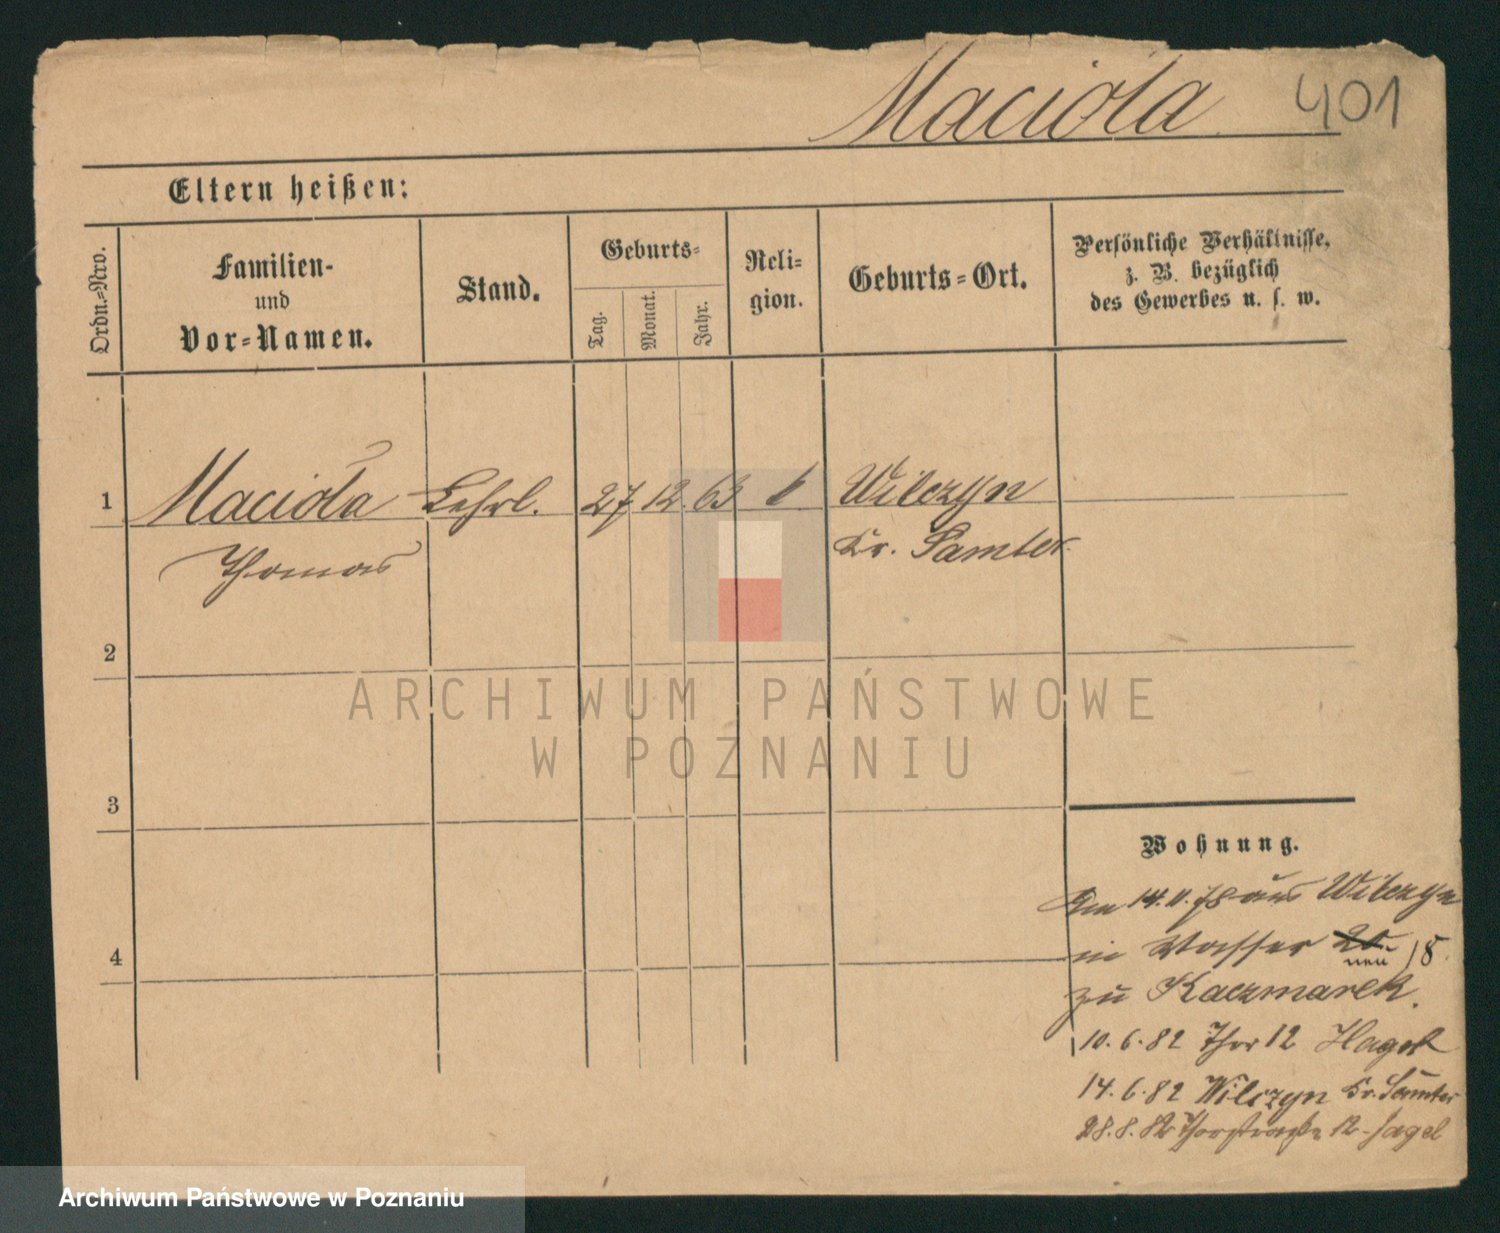 Macioła 401
Eltern heißen:
Ordn.=Nro.
Familien-
und
Vor=Namen.
Stand.
Geburts=
Tag.
Monat.
Jahr.
Reli=
gion.
Geburts=Ort.
Persönliche Verhältnisse,
z. B. bezüglich
des Gewerbes u. s. w.
1 Macioła Lehrl. 27 12. 63 k Wilczyn
Thomas Kr. Samter
2
3
4
Wohnung.
Am 14. 11. 78 aus Wilczyn
in Wasser 20. neu 18.
zu Kaczmarek.
10. 6. 82 Thor 12
14. 6. 82 Wilczyn Kr. Samter
28. 8. 82 Thorstraße 12
ARCHIWUM PAŃSTWOWE
W POZNANIU
Archiwum Państwowe w Poznaniu